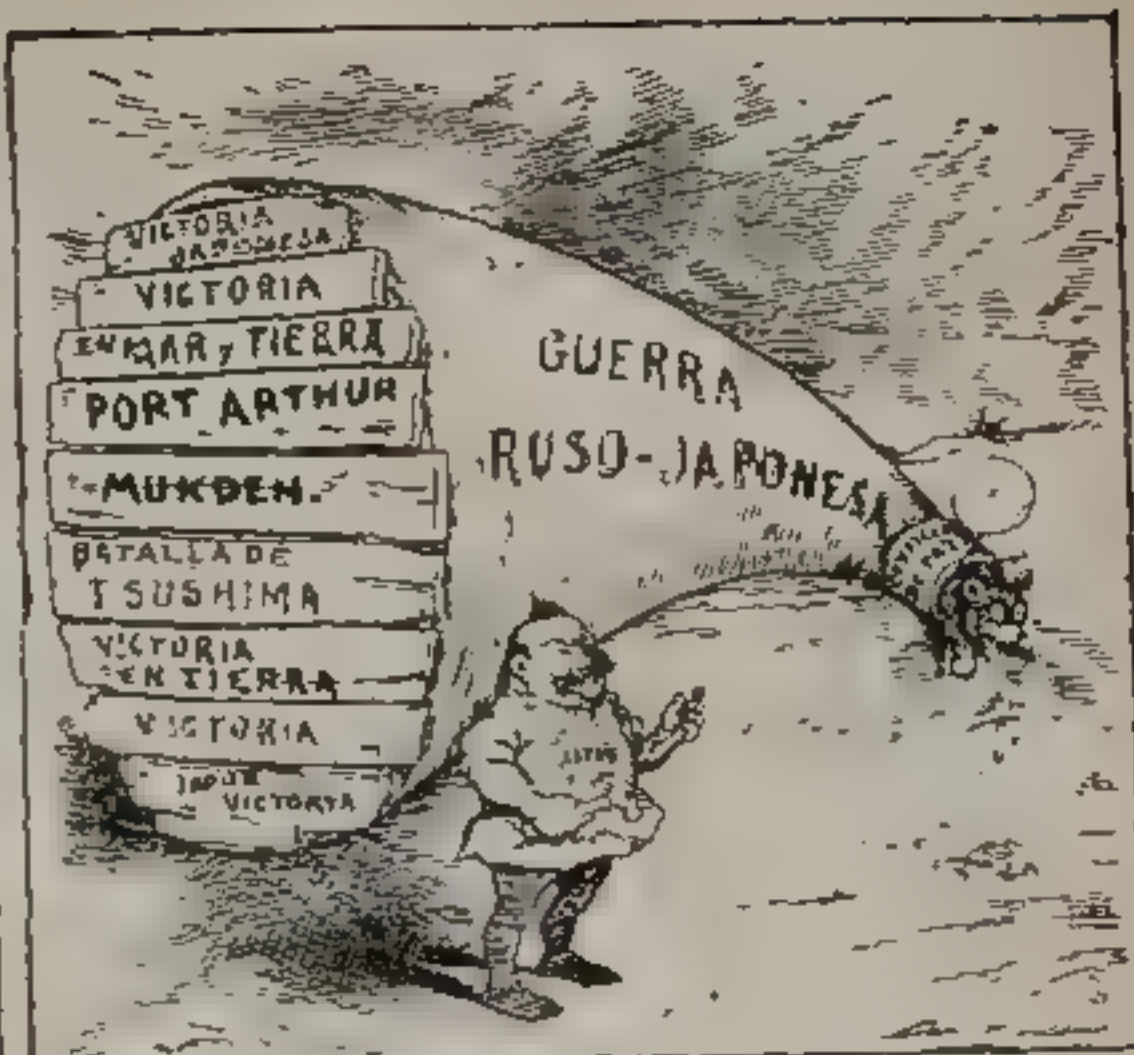 VICTORIA
JAPONESA
VICTORIA
EN MAR y TIERRA
PORT ARTHUR
MUKDEN.
BATALLA DE
TSUSHIMA
VICTORIA
EN TIERRA
VICTORIA
JAPON
VICTORIA
GUERRA
RUSO-JAPONESA
DE PAZ